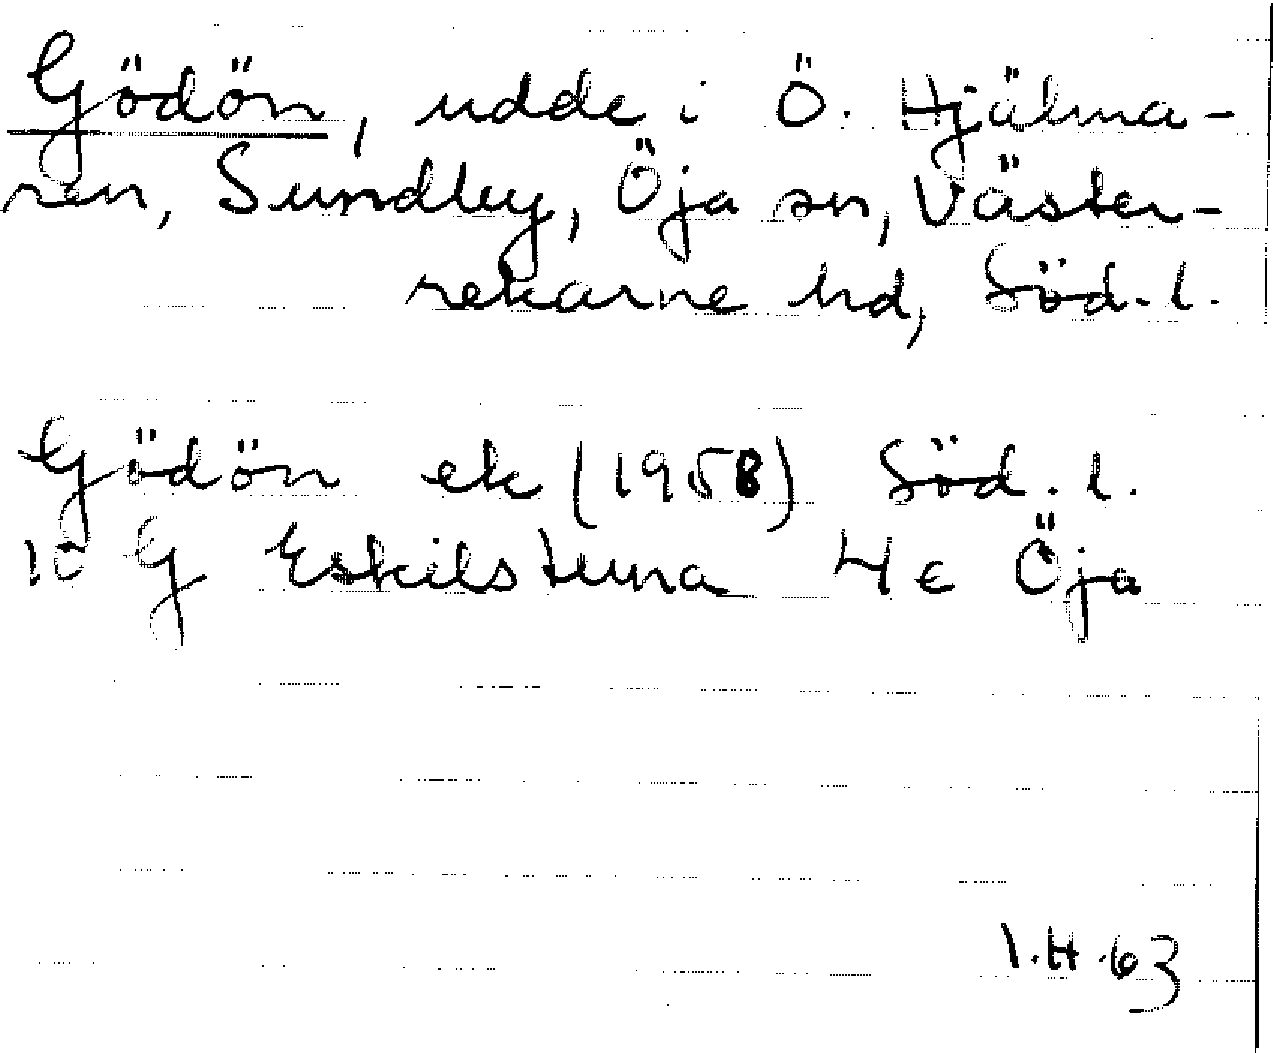 Gödön, udde i Ö. Hjälma-
ren, Sundby, Öja sn, Väster-
rekarne hd, Söd. l.
Gödön ek (1958) Söd. l.
10 G Eskilstuna 4 e Öja
I.H. 63